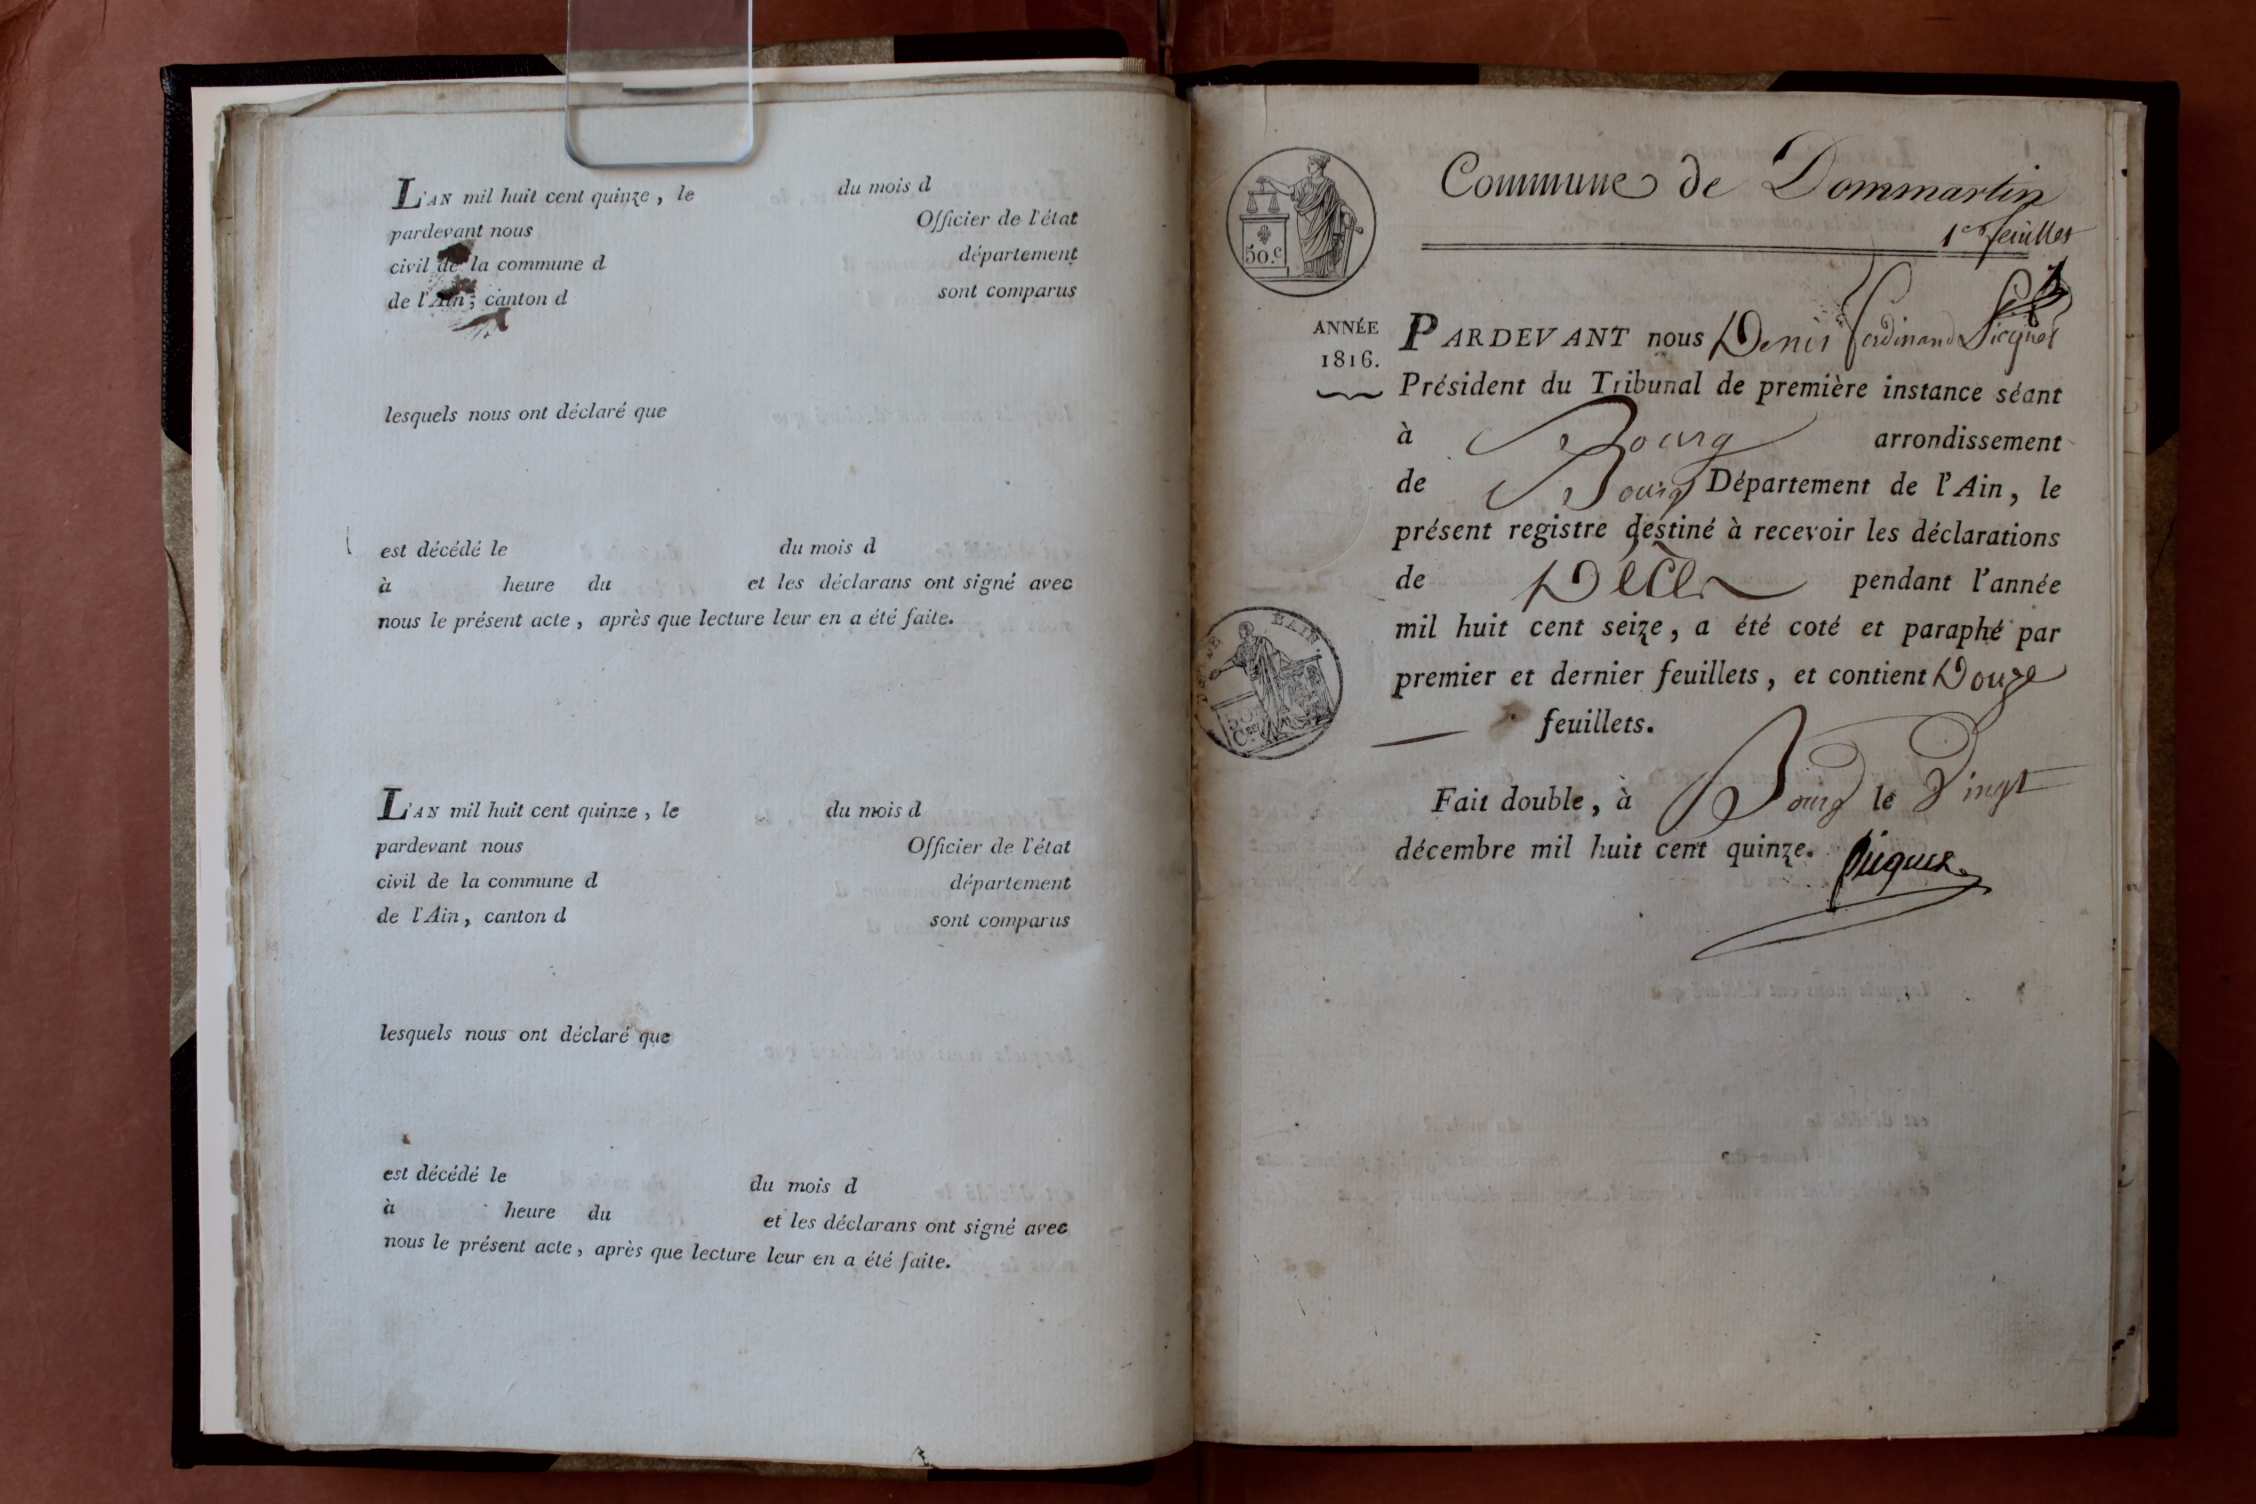 L'AN mil huit cent quinze, le du mois d
pardevant nous Officier de l'état
civil de la commune d département
de l'Ain, canton d sont comparus
lesquels nous ont déclaré que
est décédé le du mois d
à heure du et les déclarans ont signé avec
nous le présent acte, après que lecture leur en a été faite.
L'AN mil huit cent quinze, le du mois d
pardevant nous Officier de l'état
civil de la commune d département
de l'Ain, canton d sont comparus
lesquels nous ont déclaré que
est décédé le du mois d
à heure du et les déclarans ont signé avec
nous le présent acte, après que lecture leur en a été faite.
Commune de Dommartin
1er feuillet
50.c
ANNÉE
1816.
PARDEVANT nous Denis ferdinand Picquet
Président du Tribunal de première instance séant
à Bourg arrondissement
de Bourg Département de l'Ain, le
présent registre destiné à recevoir les déclarations
de Décès pendant l'année
mil huit cent seize, a été coté et paraphé par
premier et dernier feuillets, et contient Douze
feuillets.
Fait double, à Bourg le Vingt
décembre mil huit cent quinze.
Picquet